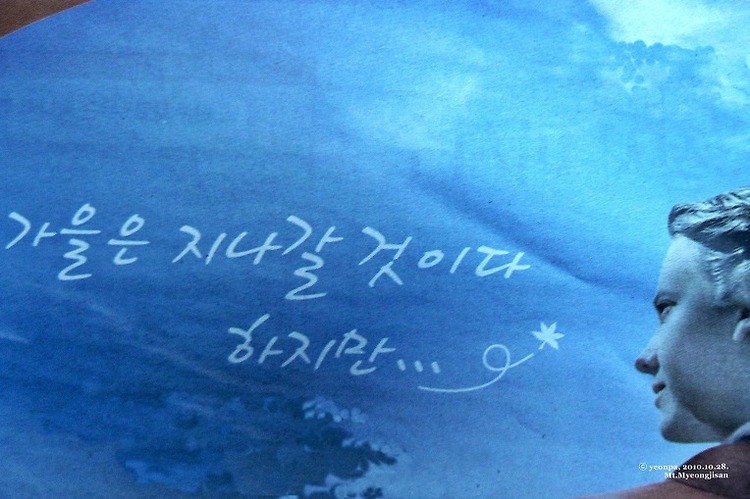 가을은 지나갈 것이다
하지만...
© yeonpa, 2010.10.28.
Mt.Myeongjisan